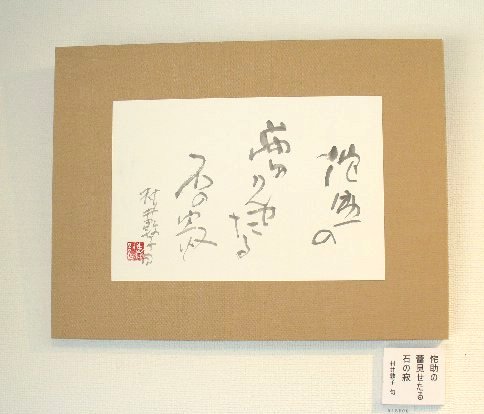 侘助の
蕾見せたる
石の寂
村井敦子句
侘助の
蕾見せたる
石の寂
村井敦子 句